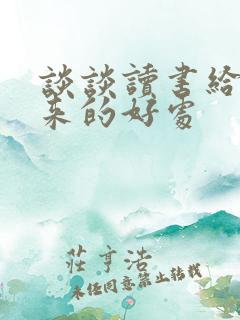 談談讀書給
來的好處
莊亨浩
未經同意禁止轉載